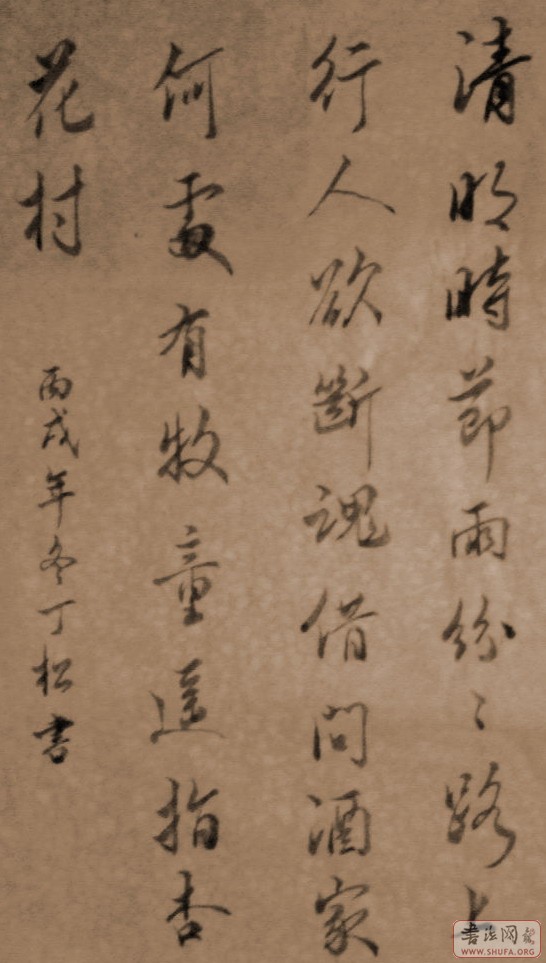 清明時節雨紛〻路上
行人欲斷魂借問酒家
何處有牧童遥指杏
花村
丙戌年冬丁松書
書法网
WWW.SHUFA.ORG